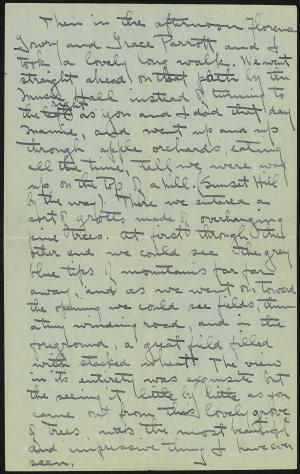 Then in the afternoon Florence
Lowry and Grace Parrott and I
took a lovely long walk. We went
straight ahead on that path by the
Music Hall instead of turning to
the right as you and I did that day
Mamie, and went up and up
through apple orchards, eating
all the time, till we were way
up on the top of a hill. (Sunset Hill
by the way). There we entered a
sort of grotto made of overhanging
pine trees. At first through the
other end we could see the grey
blue tips of mountains far far
away, and as we went on toward
the opening we could see fields, then
a tiny winding road, and in the
foreground, a great field filled
with stacked wheat! The view
in its entirety was exquisite but
the seeing it little by little as you
came out from that lovely grove
of trees, was the most beautiful
and impressive thing I have ever
seen.